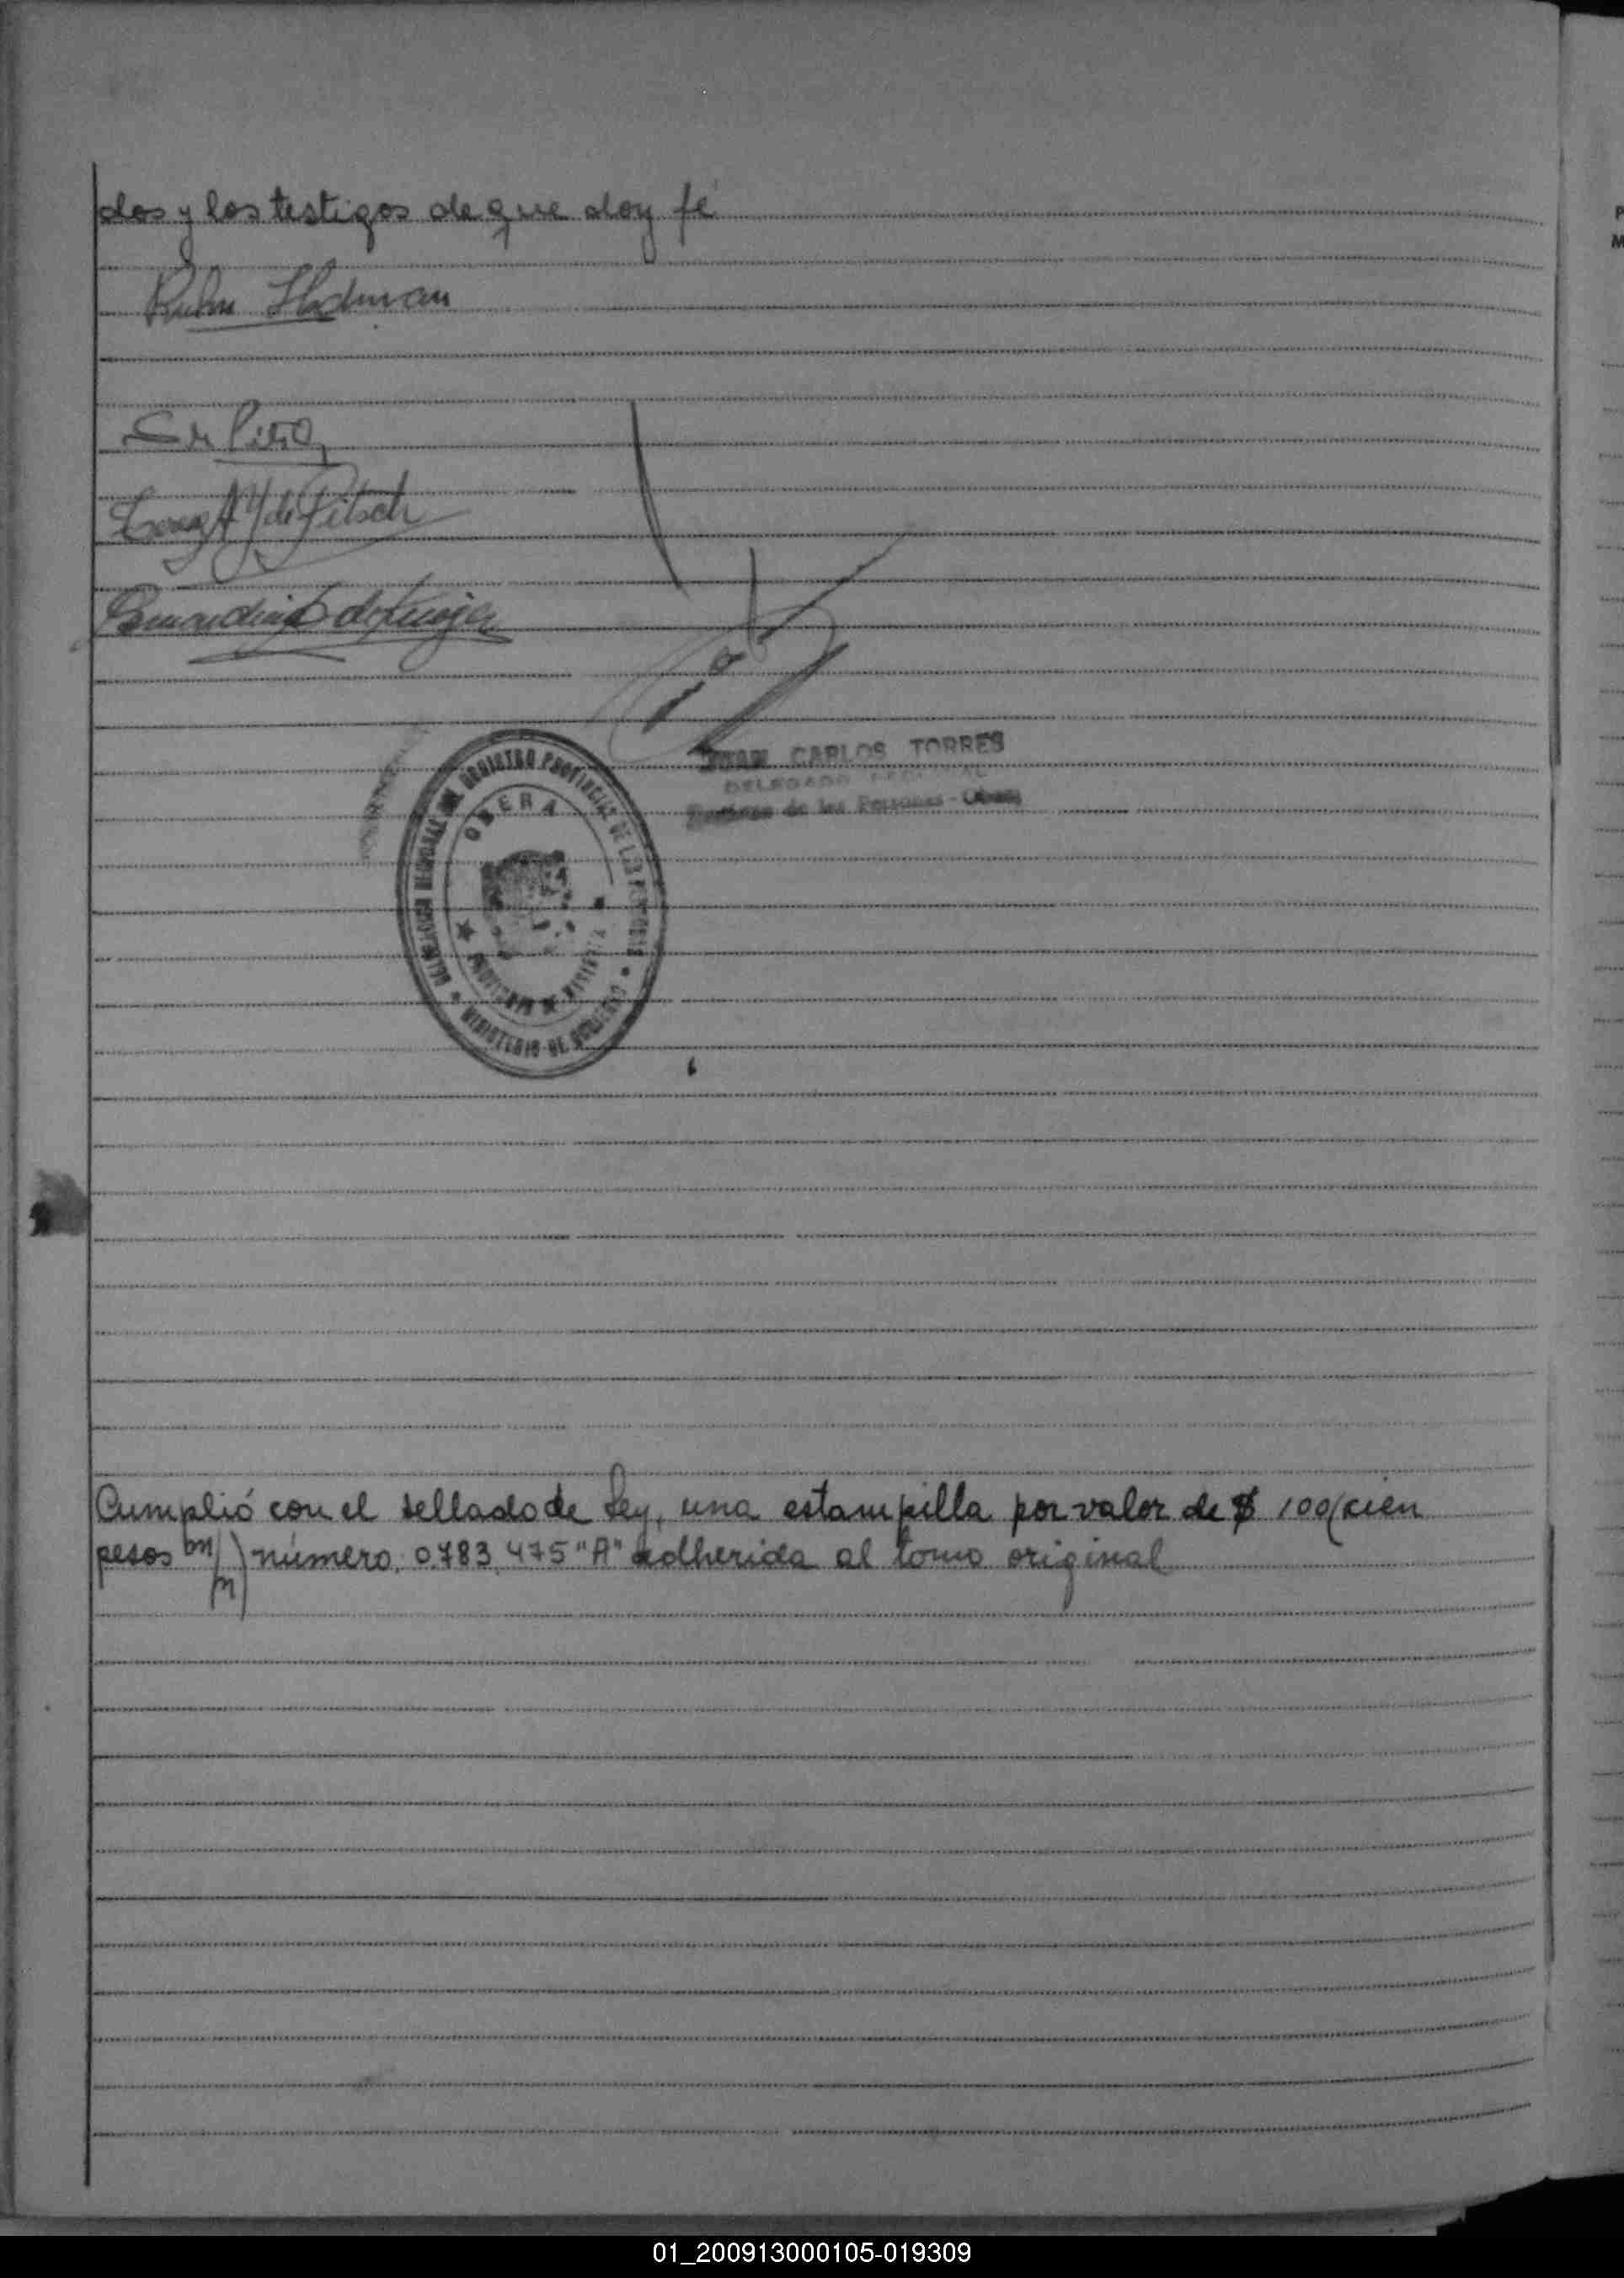 dos y los testigos de que doy fé
de Pitsch
JUAN CARLOS TORRES
DELEGADO REGIONAL
de las Personas - Oberá
REGISTRO PROVINCIAL DE LAS PERSONAS
OBERA
PROVINCIA DE MISIONES
MINISTERIO DE GOBIERNO
Cumplió con el sellado de Ley, una estampilla por valor de $ 100 (cien
pesos m/n) número 0783.475 "A" adherida al tomo original
P
M
01_200913000105-019309